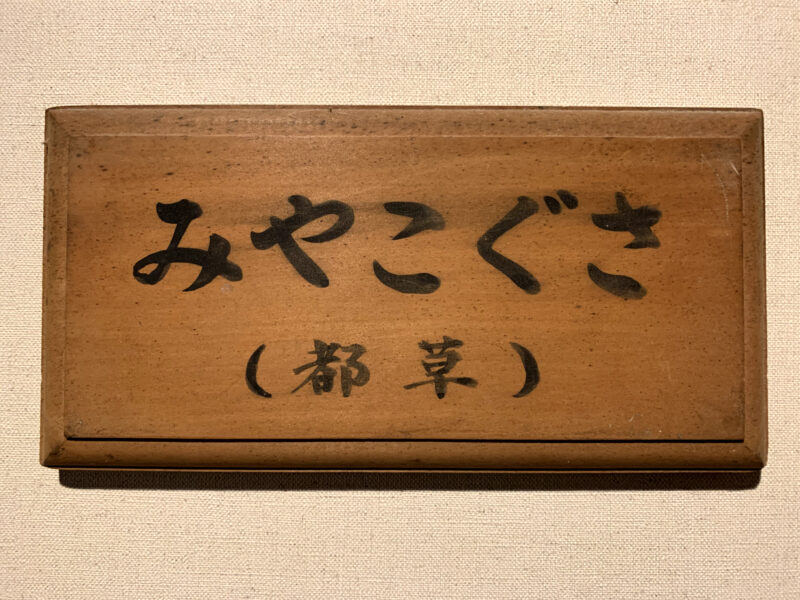 みやこぐさ
(都草)